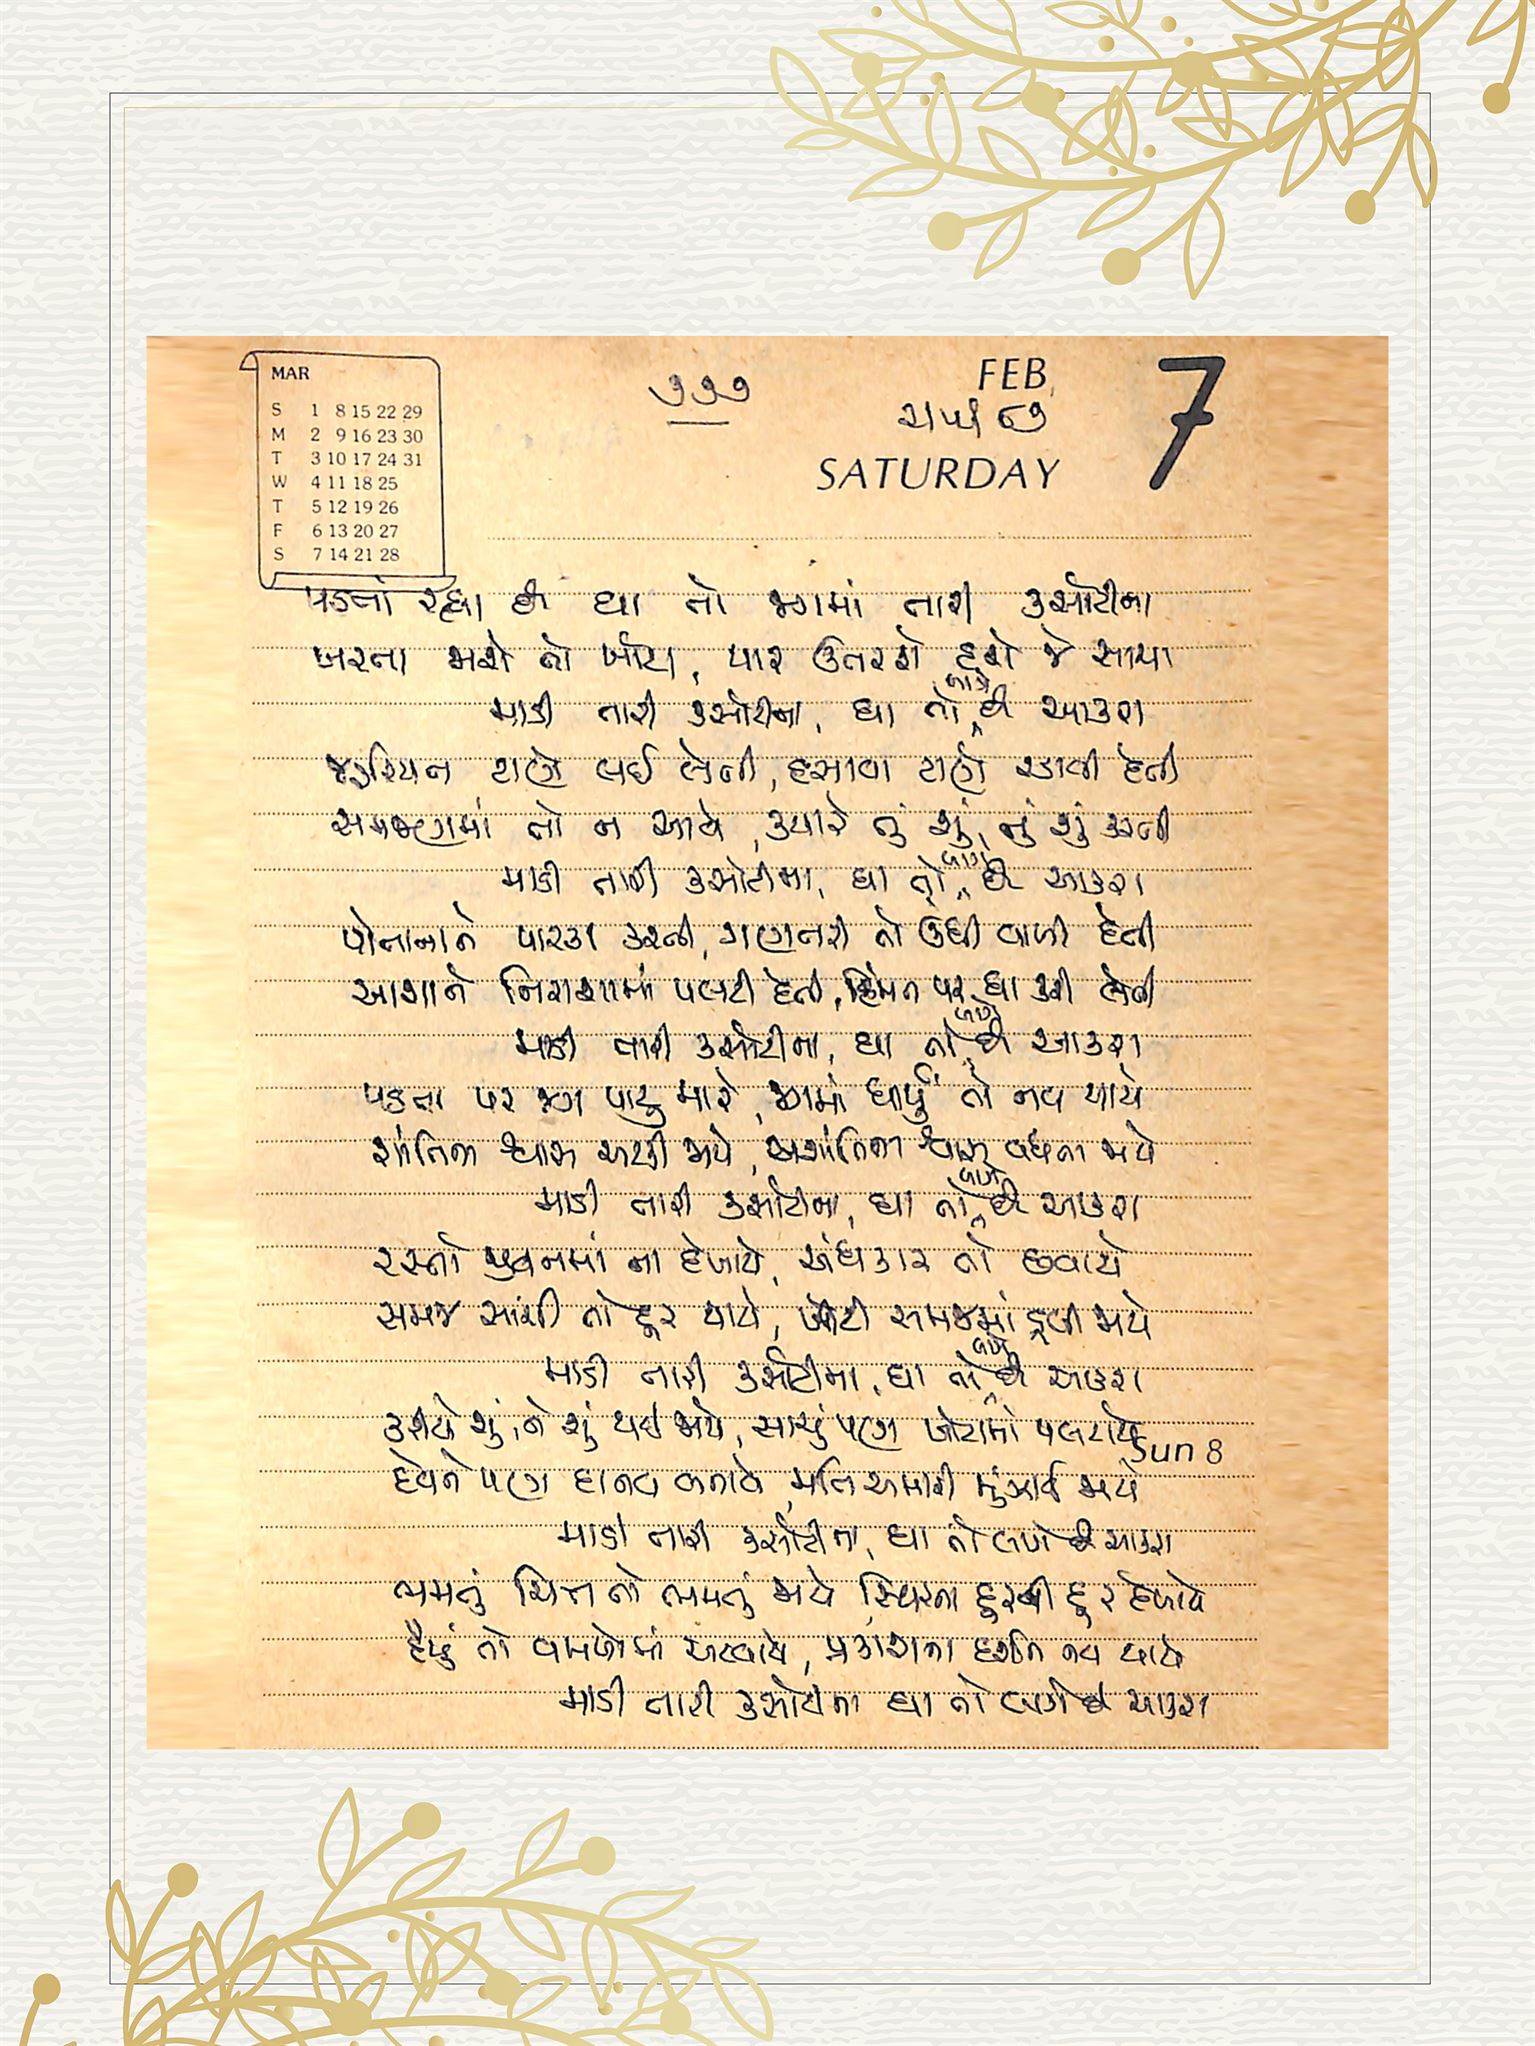 MAR
S 1 8 15 22 29
M 2 9 16 23 30
T 3 10 17 24 31
W 4 11 18 25
T 5 12 19 26
F 6 13 20 27
S 7 14 21 28
૭૭૭
FEB
7
SATURDAY
પડતાં રહ્યા છે ઘા તો જગમાં તારી કસોટીના
ખરતા જાશે તો ખોટા, પાર ઉતરશે હશે જે સાચા
માડી તારી કસોટીના, ઘા તો લાગે છે આકરા
જકડિયન લઈ લેતી, હસાવી રડાવી દેતી
સમજણમાં તો ન આવે, ક્યારે તું શું, તું શું કરતી
માડી તારી કસોટીના, ઘા તો લાગે છે આકરા
પોતાનાને પારકા કરતી, ગણતરી તો ઊંધી વાળી દેતી
આશાને નિરાશામાં પલટી દેતી, હિંમત પર ઘા કરી લેતી
માડી તારી કસોટીના, ઘા તો લાગે છે આકરા
પડતા પર જગ પાટુ મારે, જગમાં ધાર્યું તો નવ થાયે
શાંતિના શ્વાસ અટકી જાયે, અશાંતિના શ્વાસ વધતા જાયે
માડી તારી કસોટીના, ઘા તો લાગે છે આકરા
રસ્તો જીવનમાં ના દેખાયે, અંધકાર તો છવાયે
સમજ સાચી તો દૂર થાયે, ખોટી સમજમાં ડૂબી જાયે
માડી તારી કસોટીના, ઘા તો લાગે છે આકરા
કરીયે શું, ને શું થઈ જાયે, સાચું પણ ખોટામાં પલટાયે
Sun 8
દેવને પણ દાનવ બનાવે, મતિ અમારી મુંઝાઈ જાયે
માડી તારી કસોટીના, ઘા તો લાગે છે આકરા
ભમતું ચિત્ત તો ભમતું જાયે, સ્થિરતા દૂરની દૂર દેખાયે
હૈયું તો વમળોમાં અટવાયે, પ્રકાશના દર્શન નવ થાયે
માડી તારી કસોટીના ઘા તો લાગે છે આકરા